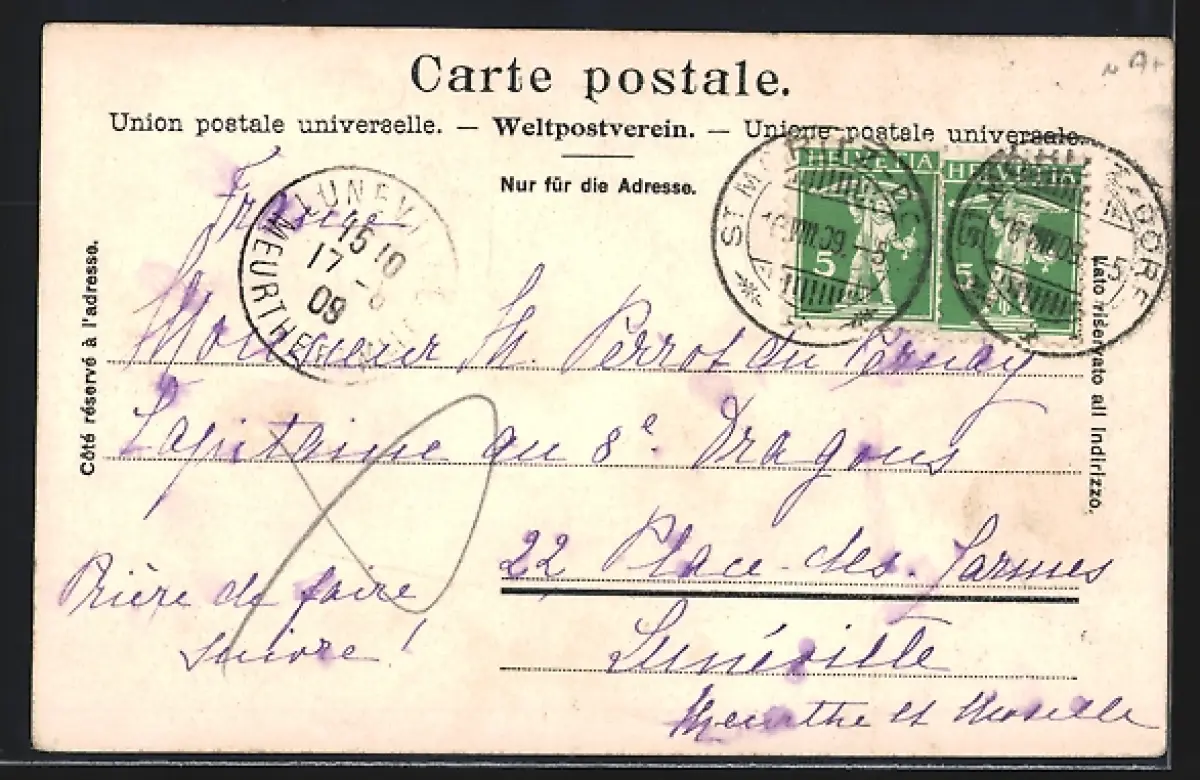 Carte postale.
Union postale universelle. — Weltpostverein. — Unione postale universale.
Nur für die Adresse.
Côté réservé à l'adresse.
Lato riservato all indirizzo.
HELVETIA
5
HELVETIA
5
ST MORITZ-DORF
16.VIII.09.-5
ST MORITZ-DORF
16.VIII.09.-5
LUNEVILLE
15 10
17 -8
09
MEURTHE ET
France
Monsieur Th. Perrot du Vernay
Capitaine au 8e Dragons
22 Place des Carmes
Prière de faire
suivre !
Lunéville
Meurthe et Moselle